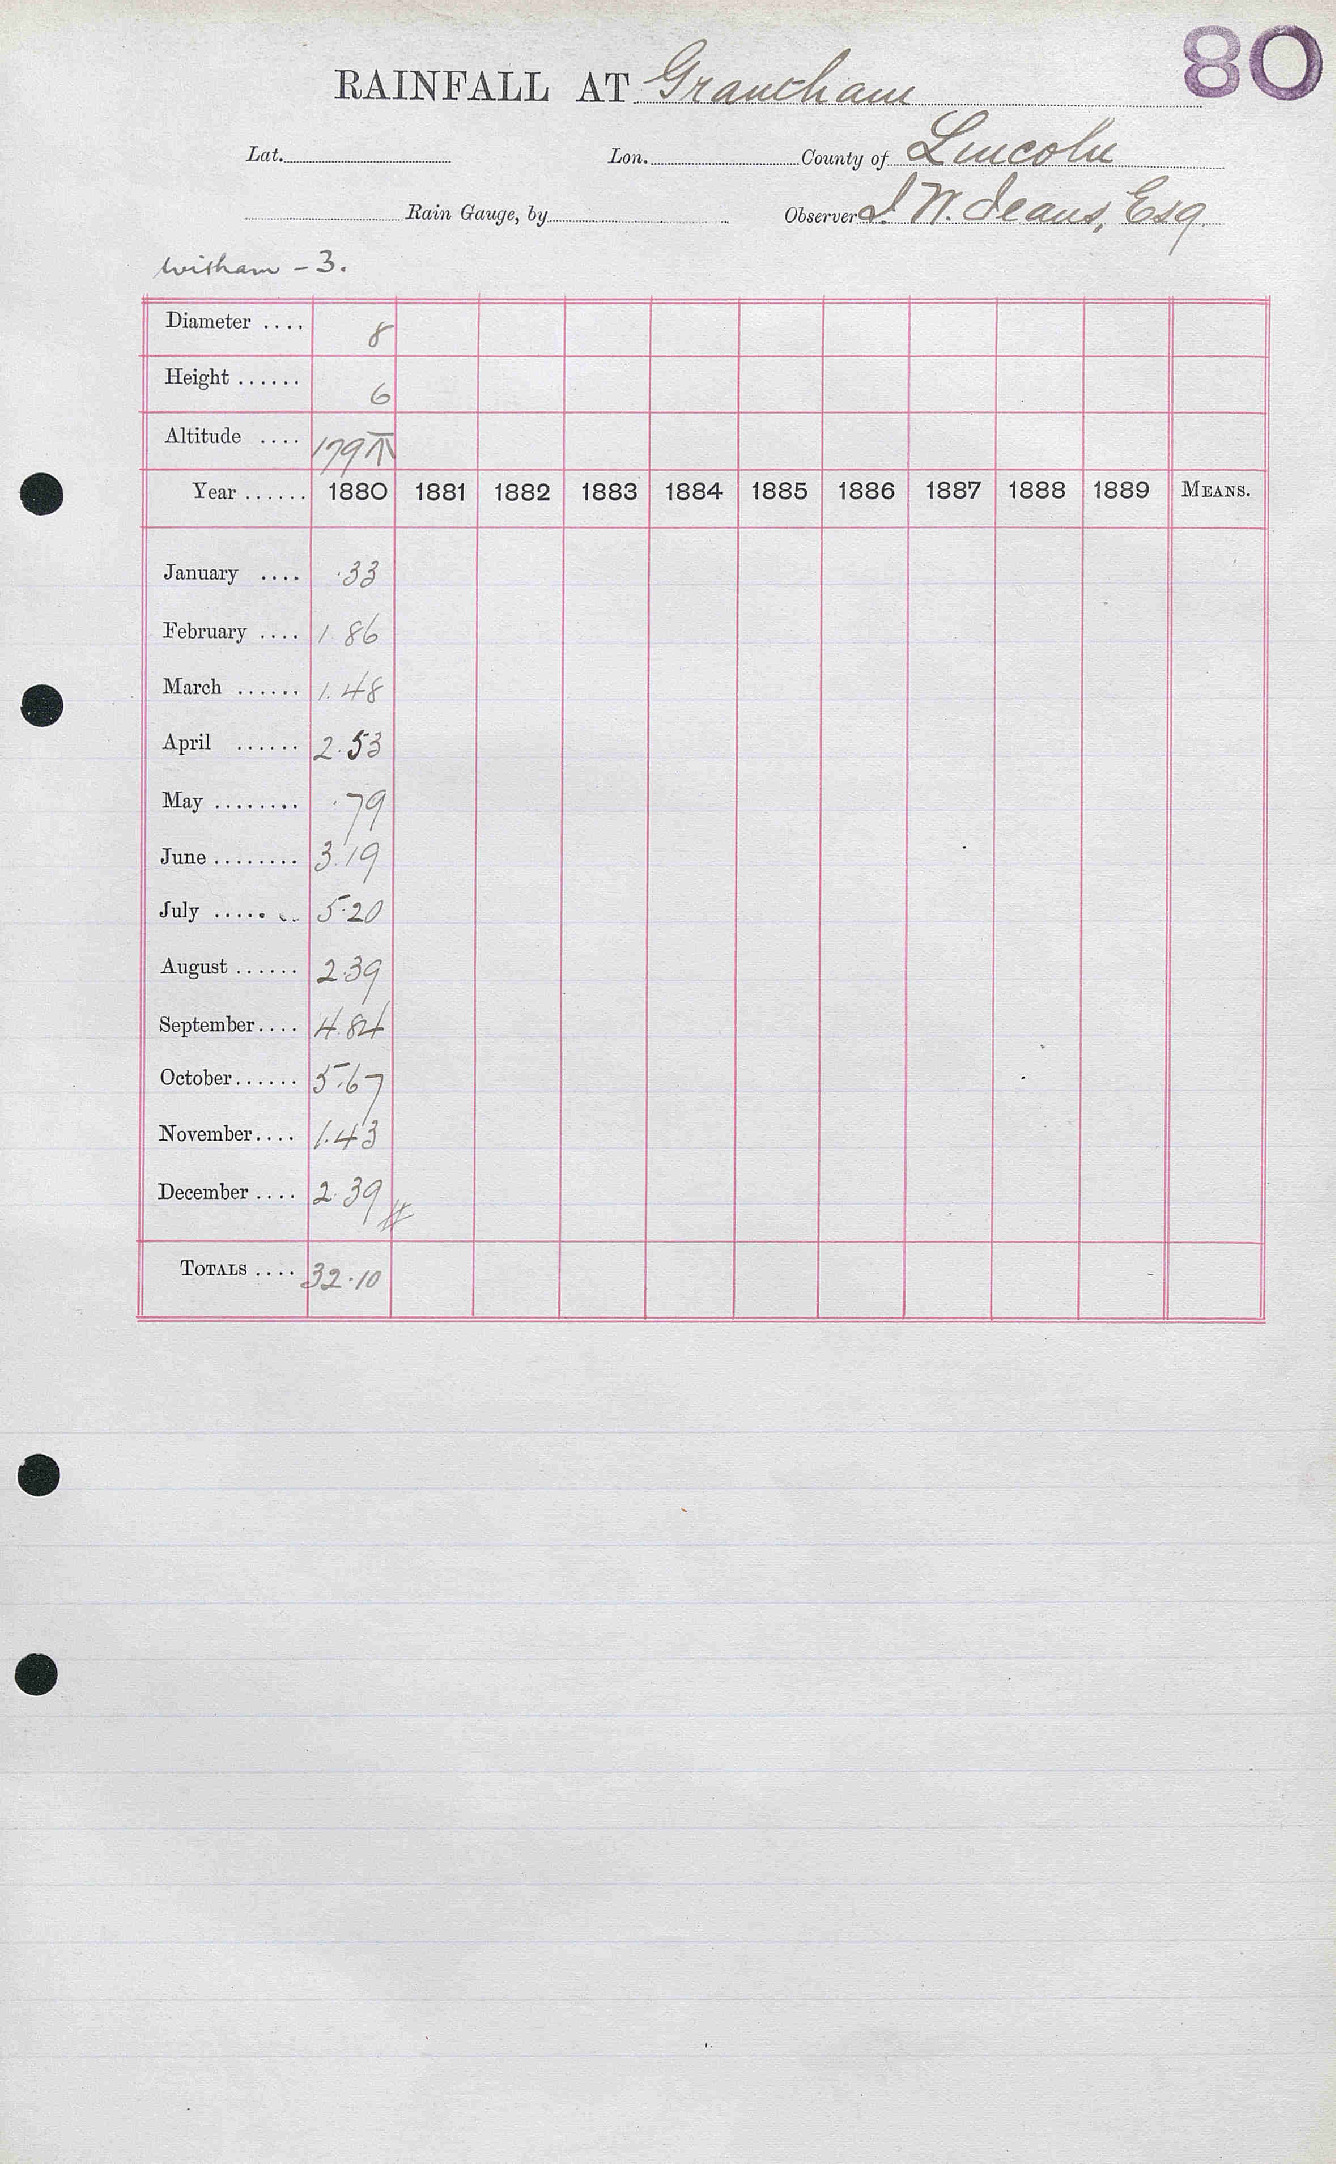 80
RAINFALL AT Grantham
Lat. Lon. County of Lincoln
Rain Gauge, by Observer J. W. Jeans, Esq.
Witham - 3.
Diameter .... 8
Height ...... 6
Altitude .... 179
Year ...... 1880 1881 1882 1883 1884 1885 1886 1887 1888 1889 MEANS.
January .... .33
February .... 1.86
March ...... 1.48
April ...... 2.53
May ........ .79
June ........ 3.19
July ........ 5.20
August ...... 2.39
September.... 4.84
October...... 5.67
November.... 1.43
December .... 2.39
TOTALS .... 32.10